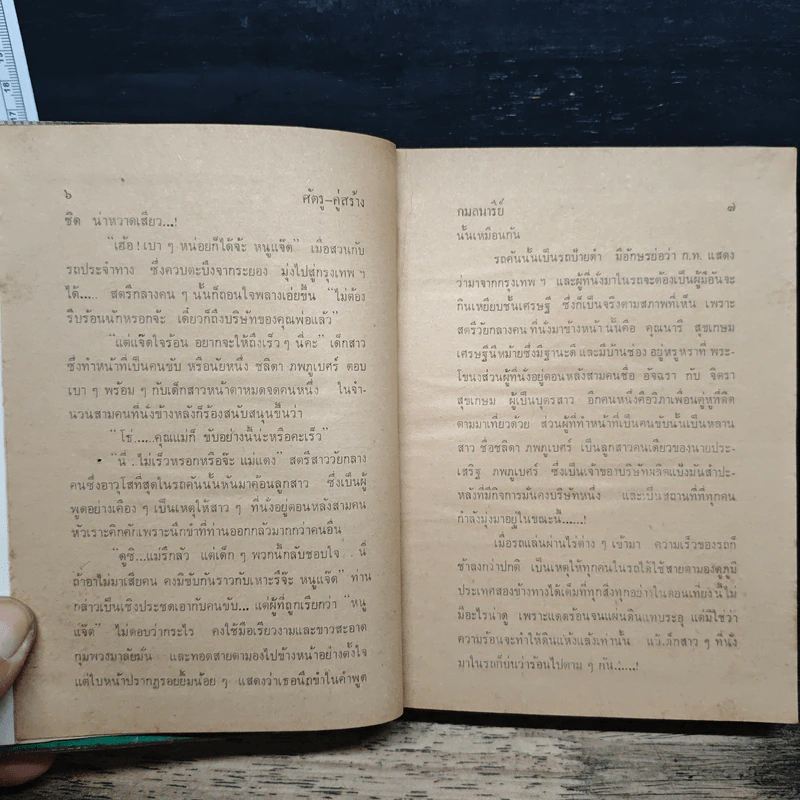 ๖
ศัตรู-คู่สร้าง
ชิด น่าหวาดเสียว...!
"เฮ้อ! เบา ๆ หน่อยก็ได้จ้ะ หนูแจ๊ด" เมื่อสวนกับ
รถประจำทาง ซึ่งควบตะบึงจากระยอง มุ่งไปสู่กรุงเทพ ฯ
ได้..... สตรีกลางคน ๆ นั้นก็ถอนใจพลางเอ่ยขึ้น "ไม่ต้อง
รีบร้อนนักหรอกจ้ะ เดี๋ยวก็ถึงบริษัทของคุณพ่อแล้ว"
"แต่แจ๊ดใจร้อน อยากจะให้ถึงเร็ว ๆ นี่คะ" เด็กสาว
ซึ่งทำหน้าที่เป็นคนขับ หรือนัยหนึ่ง ชลิดา ภพภูเบศร์ ตอบ
เบา ๆ พร้อม ๆ กับเด็กสาวหน้าตาหมดจดคนหนึ่ง ในจำ-
นวนสามคนที่นั่งข้างหลังก็ร้องสนับสนุนขึ้นว่า
"โซ่.....คุณแม่ก็ ขับอย่างนี้น่ะหรือคะเร็ว"
"นี่ .ไม่เร็วหรอกหรือจ๊ะ แม่แดง" สตรีสาววัยกลาง
คนซึ่งอาวุโสที่สุดในรถคันนั้นหันมาค้อนลูกสาว ซึ่งเป็นผู้
พูดอย่างเคือง ๆ เป็นเหตุให้สาว ๆ ที่นั่งอยู่ตอนหลังสามคน
หัวเราะคิกคักเพราะนึกขำที่ท่านออกกลัวมากกว่าคนอื่น
"ดูซิ...แม่รึกลัว แต่เด็ก ๆ พวกนี้กลับชอบใจ นี่
ถ้าอาไม่มาเสียคน คงมิขับกันราวกับเหาะรึจ๊ะ หนูแจ๊ด" ท่าน
กล่าวเป็นเชิงประชดเอากับคนขับ... แต่ผู้ที่ถูกเรียกว่า "หนู
แจ๊ด" ไม่ตอบว่ากระไร คงใช้มือเรียวงามและขาวสะอาด
กุมพวงมาลัยมั่น และทอดสายตามองไปข้างหน้าอย่างตั้งใจ
แต่ใบหน้าปรากฏรอยยิ้มน้อย ๆ แสดงว่าเธอนึกขำในคำพูด
กมลนารีย์
๗
นั้นเหมือนกัน
รถคันนั้นเป็นรถป้ายดำ มีอักษรย่อว่า ก.ท. แสดง
ว่ามาจากกรุงเทพ ฯ และผู้ที่นั่งมาในรถจะต้องเป็นผู้มีอันจะ
กินเหยียบชั้นเศรษฐี ซึ่งก็เป็นจริงตามสภาพที่เห็น เพราะ
สตรีวัยกลางคน ที่นั่งมาข้างหน้านั้นคือ คุณนารี สุขเกษม
เศรษฐีนีหม้ายซึ่งมีฐานะดี และมีบ้านช่อง อยู่หรูหราที่ พระ-
โขนงส่วนผู้ที่นั่งอยู่ตอนหลังสามคนชื่อ อัจฉรา กับ จิตรา
สุขเกษม ผู้เป็นบุตรสาว อีกคนหนึ่งคือวิภาเพื่อนคู่หูที่ติด
ตามมาเที่ยวด้วย ส่วนผู้ที่ทำหน้าที่เป็นคนขับนั้นเป็นหลาน
สาว ชื่อชลิดา ภพภูเบศร์ เป็นลูกสาวคนเดียวของนายประ-
เสริฐ ภพภูเบศร์ ซึ่งเป็นเจ้าของบริษัทผลิตแป้งมันสำปะ-
หลังที่มีกิจการมั่นคงบริษัทหนึ่ง และเป็นสถานที่ที่ทุกคน
กำลังมุ่งมาอยู่ในขณะนี้......!
เมื่อรถแล่นผ่านไร่ต่าง ๆ เข้ามา ความเร็วของรถก็
ช้าลงกว่าปกติ เป็นเหตุให้ทุกคนในรถได้ใช้สายตามองดูภูมิ
ประเทศสองข้างทางได้เต็มที่ทุกสิ่งทุกอย่างในตอนเที่ยงนี้ไม่
มีอะไรน่าดู เพราะแดดร้อนจนแผ่นดินแทบระอุ แต่มิใช่ว่า
ความร้อนจะทำให้ดินแห้งแล้งเท่านั้น แว้เด็กสาว ๆ ที่นั่ง
มาในรถก็บ่นว่าร้อนไปตาม ๆ กัน.....!